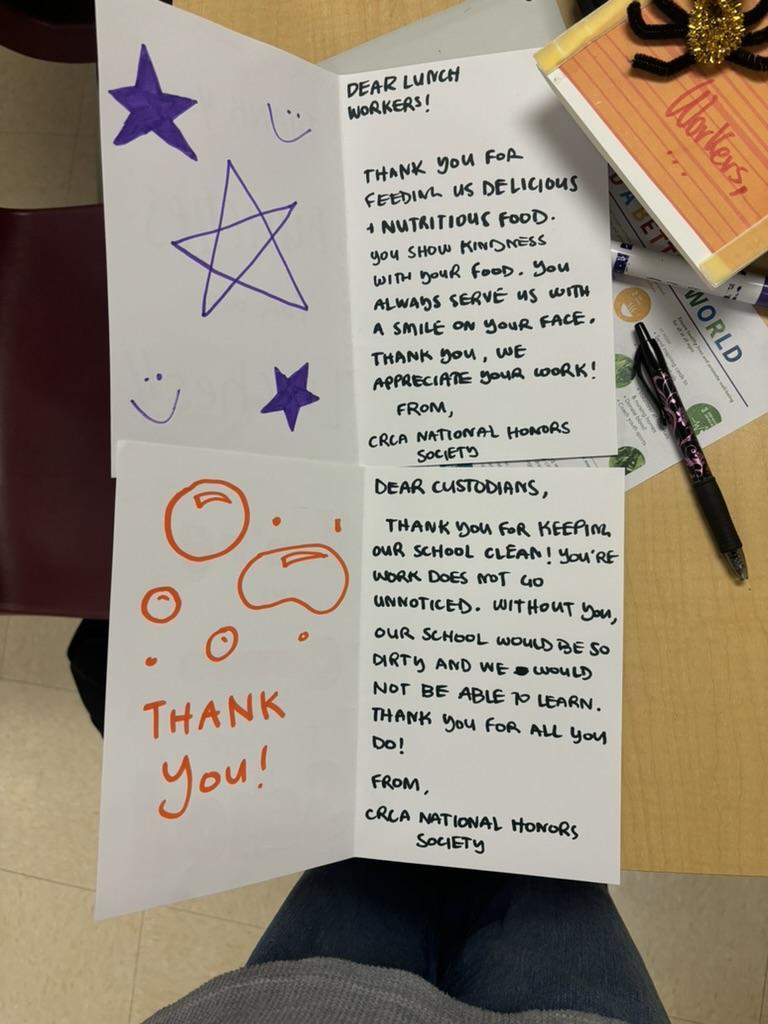 DEAR LUNCH
WORKERS!
THANK YOU FOR
FEEDING US DELICIOUS
+ NUTRITIOUS FOOD.
YOU SHOW KINDNESS
WITH YOUR FOOD. YOU
ALWAYS SERVE US WITH
A SMILE ON YOUR FACE.
THANK YOU, WE
APPRECIATE YOUR WORK!
FROM,
CRCA NATIONAL HONORS
SOCIETY
Workers,
...
WORLD
THANK
YOU!
DEAR CUSTODIANS,
THANK YOU FOR KEEPING
OUR SCHOOL CLEAN! YOU'RE
WORK DOES NOT GO
UNNOTICED. WITHOUT YOU,
OUR SCHOOL WOULD BE SO
DIRTY AND WE WOULD
NOT BE ABLE TO LEARN.
THANK YOU FOR ALL YOU
DO!
FROM,
CRCA NATIONAL HONORS
SOCIETY